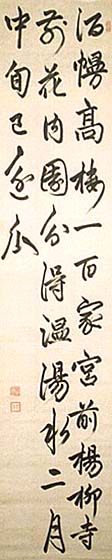 酒幔高樓一百家宮前楊柳寺
前花内園分得温湯水二月
中旬已進瓜